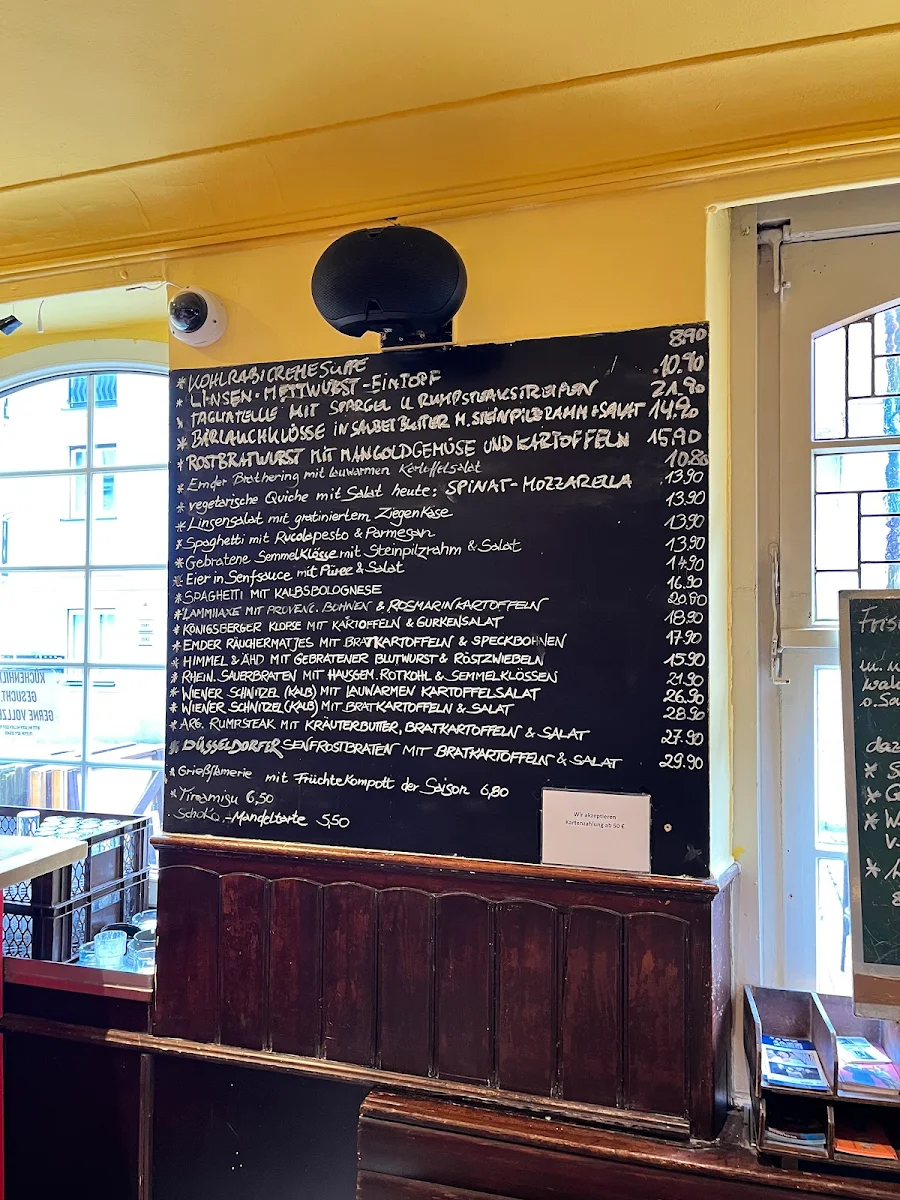 * KOHLRABICREMESUPPE 8.90
* LINSEN-METTWURST-EINTOPF 10.90
* TAGLIATELLE MIT SPARGEL U. RUMPSTEAKSTREIFEN 21.90
* BÄRLAUCHKLÖSSE IN SALBEIBUTTER M. STEINPILZRAHM + SALAT 14.90
* ROSTBRATWURST MIT MANGOLDGEMÜSE UND KARTOFFELN 15.90
* Emder Brathering mit lauwarmen Kartoffelsalat 10.80
* vegetarische Quiche mit Salat heute: SPINAT-MOZZARELLA 13.90
* Linsensalat mit gratiniertem Ziegenkäse 13.90
* Spaghetti mit Rucolapesto & Parmesan 13.90
* Gebratene Semmelklösse mit Steinpilzrahm & Salat 13.90
* Eier in Senfsauce mit Püree & Salat 14.90
* SPAGHETTI MIT KALBSBOLOGNESE 16.90
* LAMMHAXE MIT PROVENC. BOHNEN & ROSMARINKARTOFFELN 20.80
* KÖNIGSBERGER KLOPSE MIT KARTOFFELN & GURKENSALAT 18.90
* EMDER RÄUCHERMATJES MIT BRATKARTOFFELN & SPECKBOHNEN 17.90
* HIMMEL & ÄHD MIT GEBRATENER BLUTWURST & RÖSTZWIEBELN 15.90
* RHEIN. SAUERBRATEN MIT HAUSGEM. ROTKOHL & SEMMELKLÖSSEN 21.90
* WIENER SCHNITZEL (KALB) MIT LAUWARMEN KARTOFFELSALAT 26.90
* WIENER SCHNITZEL (KALB) MIT BRATKARTOFFELN & SALAT 28.90
* ARG. RUMPSTEAK MIT KRÄUTERBUTTER, BRATKARTOFFELN & SALAT 27.90
* DÜSSELDORFER SENFROSTBRATEN MIT BRATKARTOFFELN & SALAT 29.90
* Grießflamerie mit Früchtekompott der Saison 6,80
* Tiramisu 6,50
Schoko-Mandeltarte 5,50
Wir akzeptieren
Kartenzahlung ab 50 €
KÜCHENHIL
GESUCHT.
GERNE VOLLZE
Fris